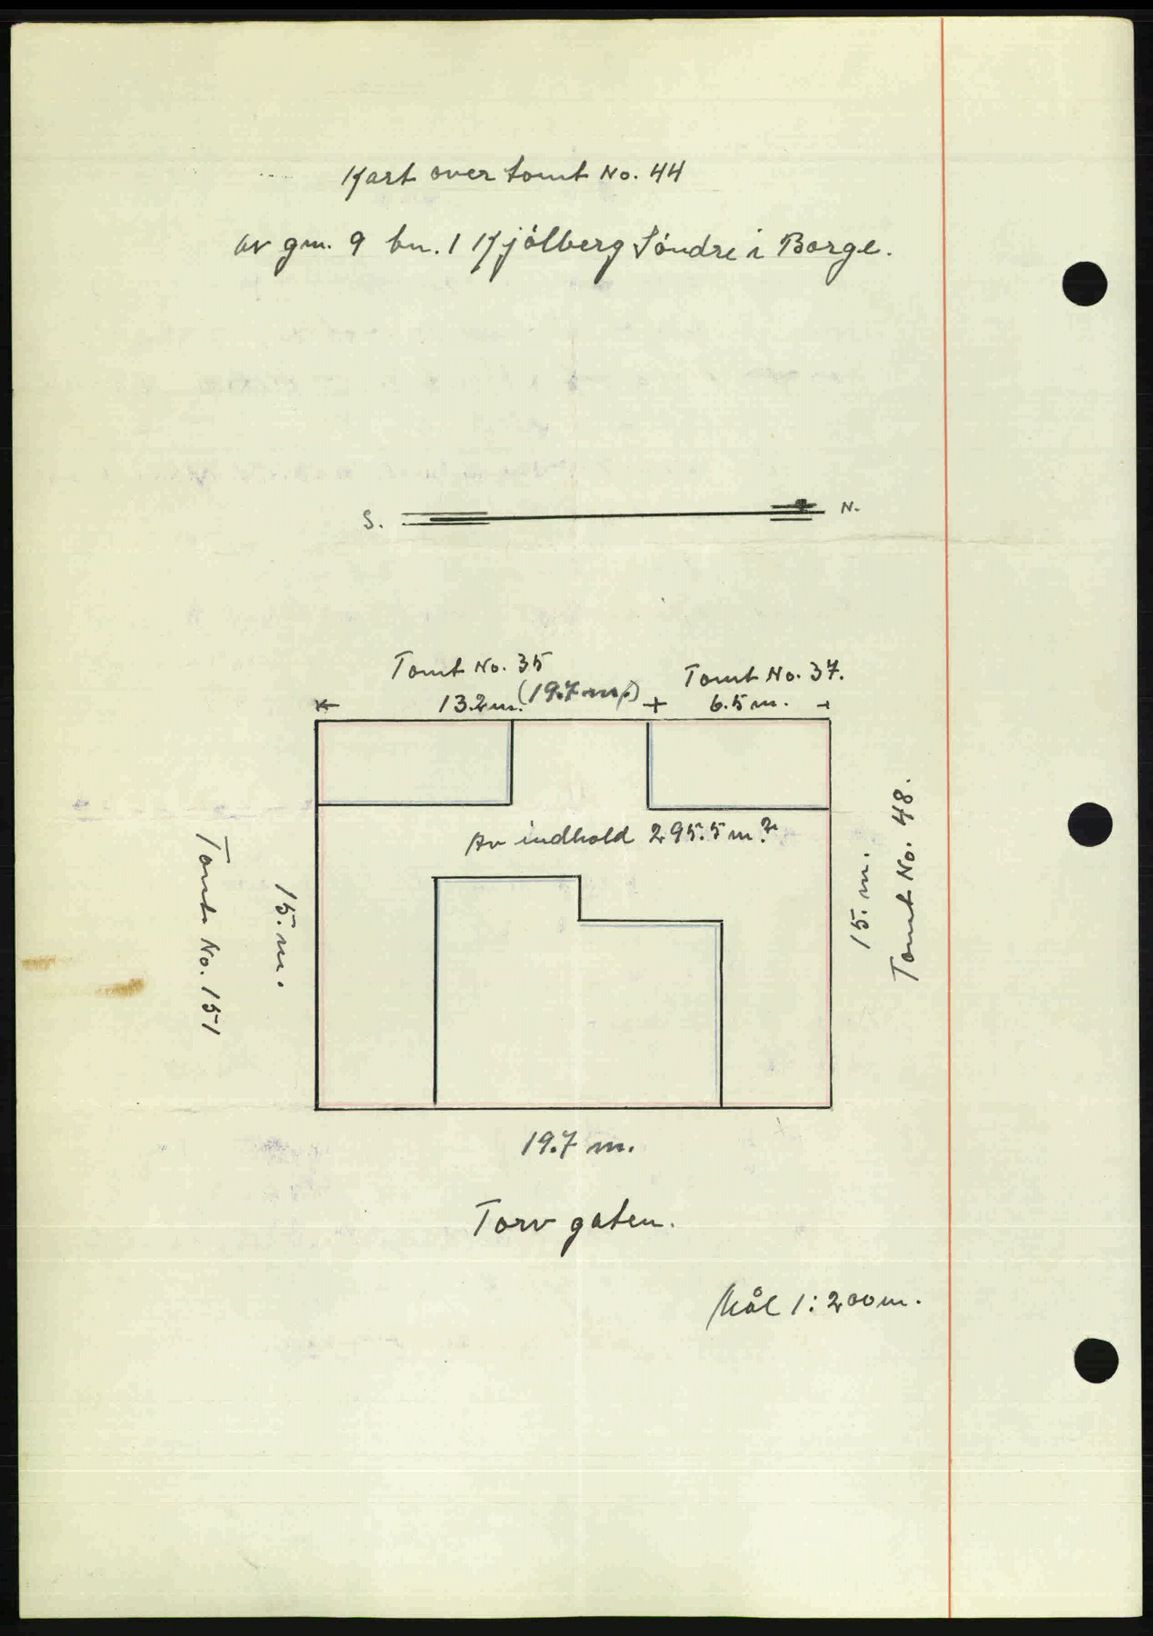 Kart over tomt No. 44
av gm. 9 bn. 1 Kjølberg Søndre i Borge.
S. N.
Tomt No. 35 Tomt No. 37.
13.2 m. (19.7 m.) 6.5 m.
Av indhold 295.5 m².
Tomt No. 151
15. m.
15. m.
Tomt No. 48.
19.7 m.
Torv gaten.
Mål 1:200 m.